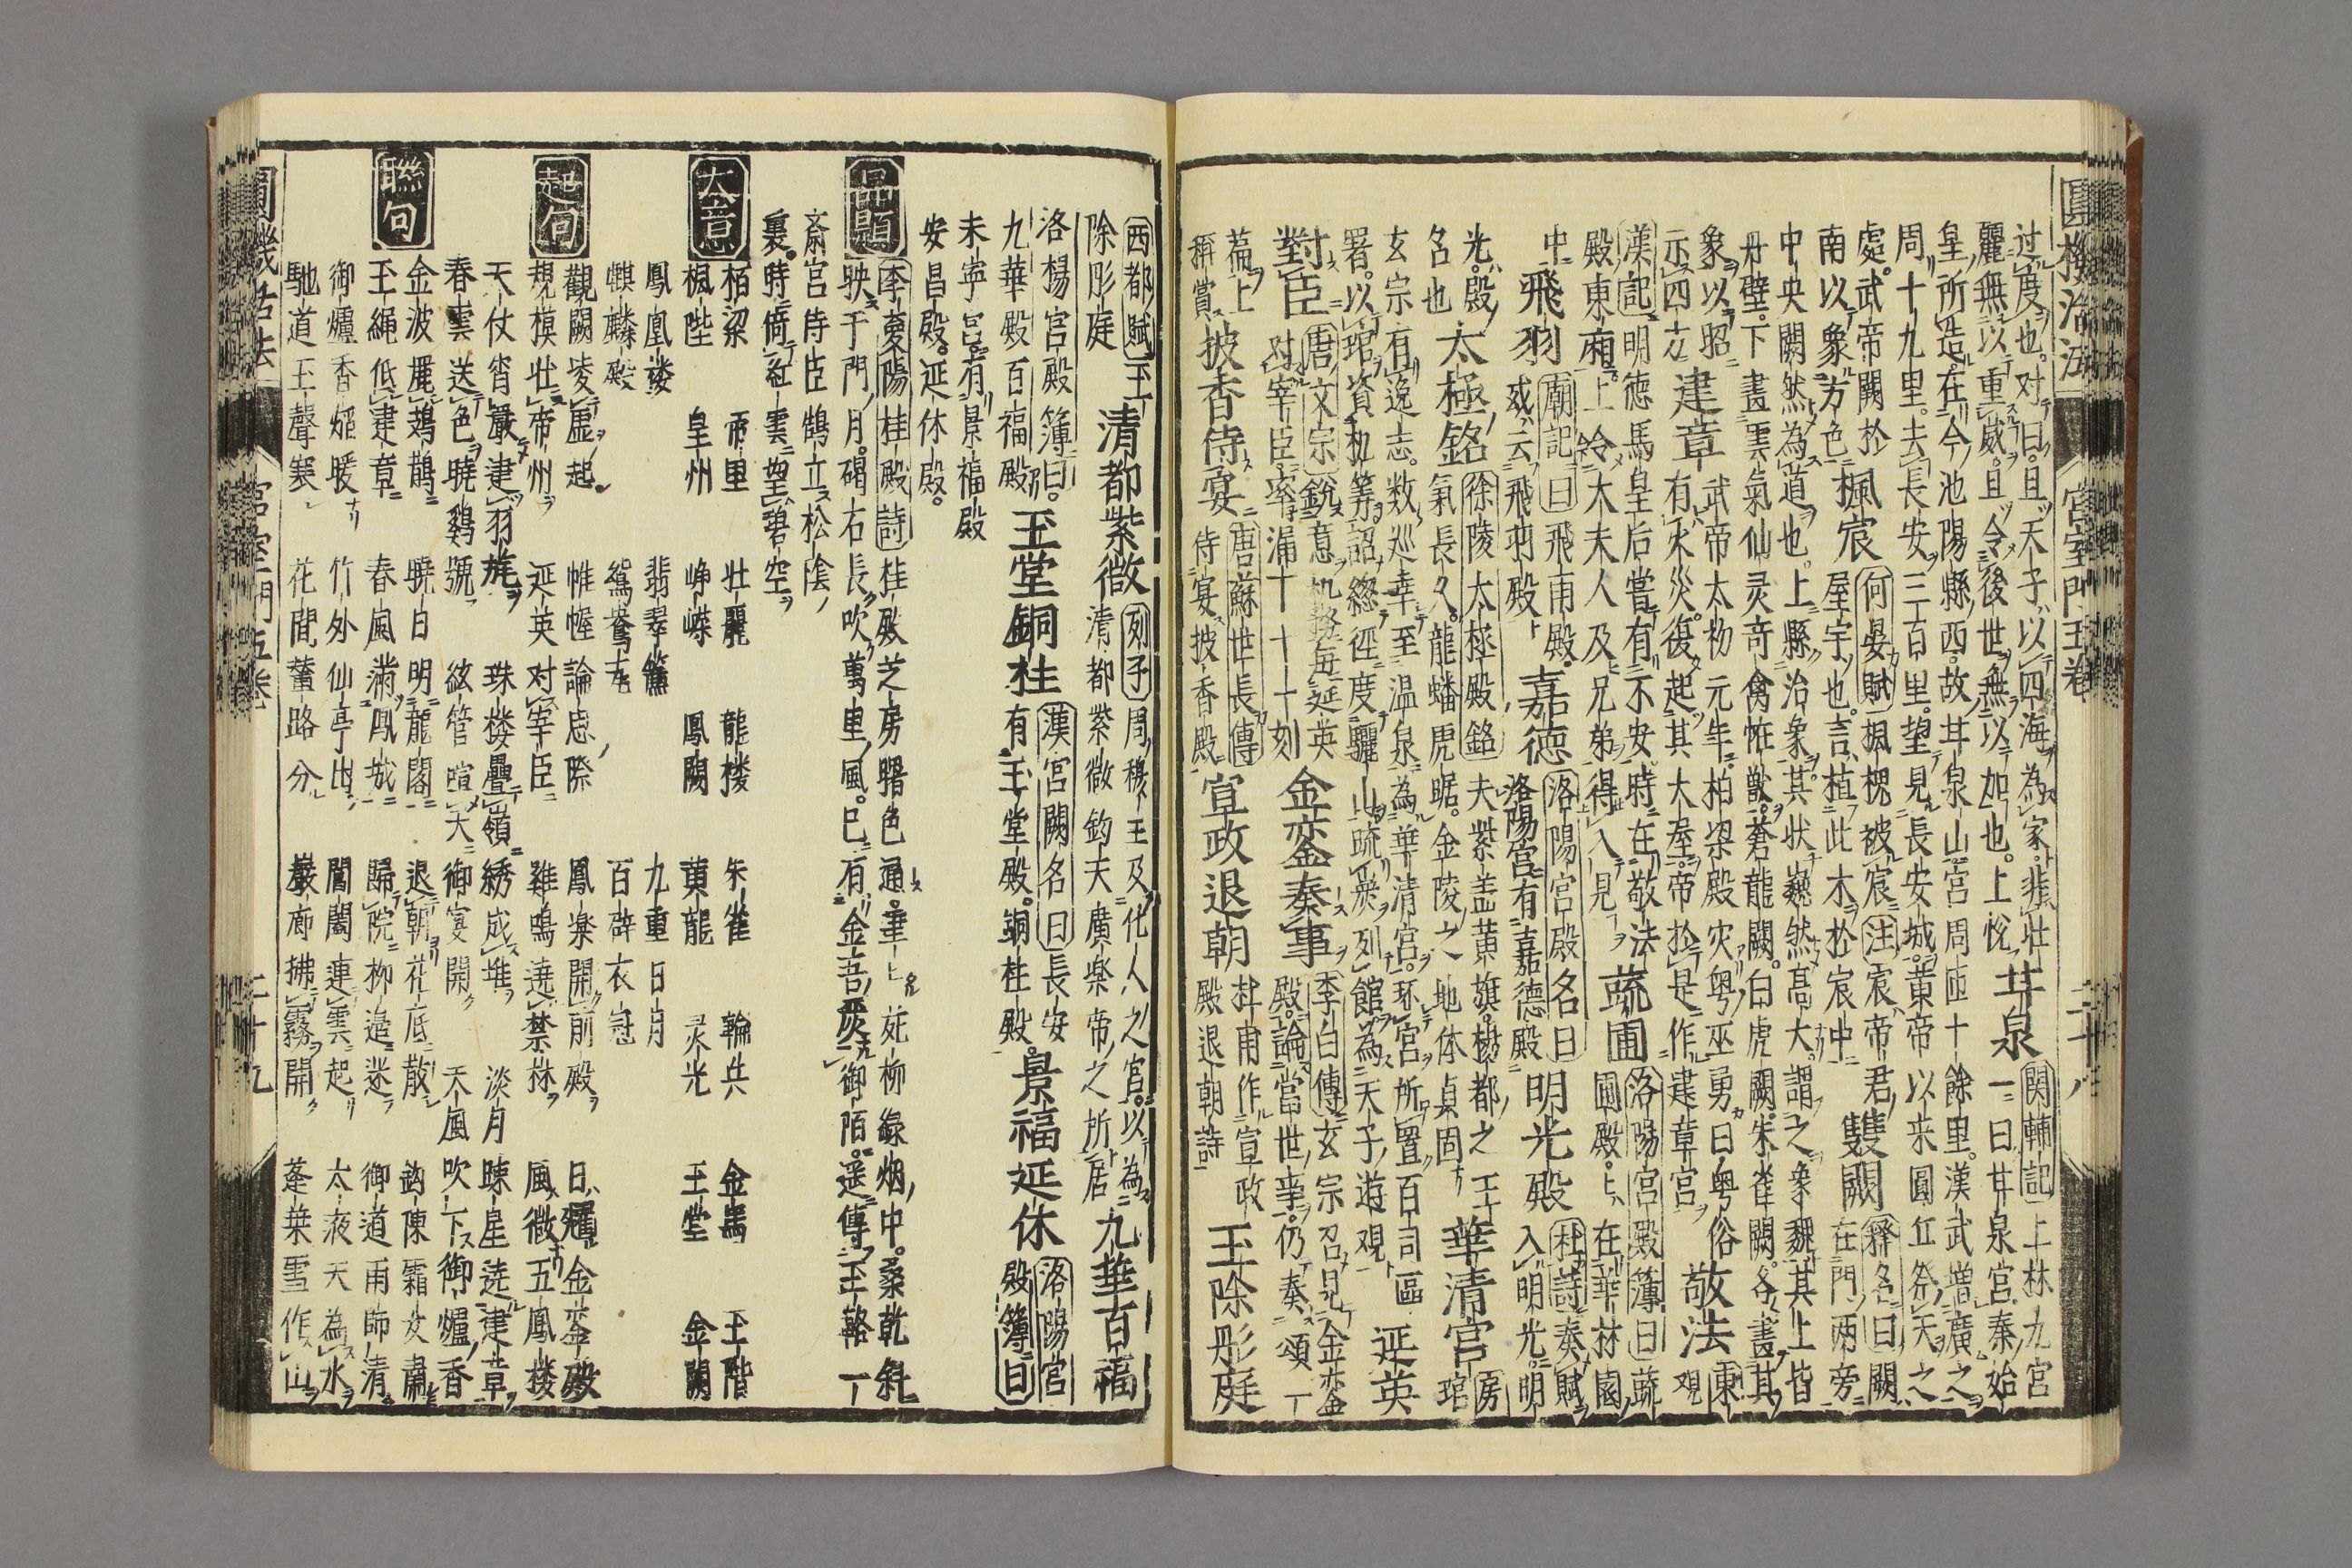 圓機活法　宮室門五卷　二十八
过度也。对曰。且天子以四海為家。非壯
麗無以重威。且令後世無以加也。上悅
甘泉
關輔記上林九宮
一曰甘泉宮秦始
皇所造。在今池陽縣西。故甘泉山宮周匝十餘里。漢武増廣之
周十九里。去長安三百里。望見長安城。黄帝以来圓丘祭天之
處。武帝闕於
南以象方色
楓宸
何晏賦楓槐被宸注宸帝君
屋宇也。言植此木於宸中
雙闕
釋名曰闕
在門両旁
中央闕然為道也。上縣治象。其状巍然髙大。謂之象魏其上皆
丹壁。下畫雲氣仙灵奇禽恠獣。蒼龍闕。白虎闕朱雀闕。各畫其
象。以昭
示四方
建章
武帝太初元年。柏梁殿灾粤巫勇曰粤俗
有火災。復起其大屋。帝於是作建章宮
敬法
東觀
漢記明徳馬皇后嘗有不安。時在敬法
殿東廂。上令太夫人及兄弟得入見
蔬圃
洛陽宮殿簿曰蔬
圃殿。在華林園
中
飛羽
廟記曰飛雨殿。
或云飛羽殿
嘉徳
洛陽宮殿名曰
洛陽宮有嘉德殿
明光殿
杜詩奏賦
入明光。明
光。殿
名也
太極銘
徐陵太極殿銘夫紫盖黄旗。楊都之王
氣長久。龍蟠虎踞。金陵之地体貞固
華清宮
房琯
玄宗有逸志。数巡幸至温泉為華清宮。环宮所置百司區
署。以琯資机筭詔緫徑度驪山疏巖列館為天子遊觀
延英
對臣
唐文宗銳意机務毎延英
对宰臣率漏十一刻
金鑾奏事
李白傳玄宗召見金鑾
殿。論當世事。仍奏頌一
篇。上
稱賞
披香侍宴
唐蘇世長傳
侍宴披香殿
宣政退朝
杜甫作宣政
殿退朝詩
玉除彤庭
西都賦玉
除彤庭
清都紫微
列子周穆王及化人之宮。以為
清都紫微鈞天廣楽帝之所居
九華百福
洛楊宮殿簿曰。
九華殿百福殿
玉堂銅柱
漢宮闕名曰長安
有玉堂殿。銅柱殿。
景福延休
洛陽宮
殿簿曰
未寧宮。有景福殿
安昌殿。延休殿。
品題
李夏陽桂殿詩桂殿芝房曙色通。華上苑柳緑烟中。桑乾斜
映千門月。碣石長吹萬里風。已有金吾嚴御陌。遥傳玉輅一
齋宮侍臣鶴立松陰
裏。時倚紅雲望碧空
大意
栢梁　帝里　壮麗　龍楼　朱雀　輪兵　金馬　玉階
楓陛　皇州　崢嶸　鳳闕　黄龍　灵光　玉堂　金闕
鳳凰楼　翡翠簾　九重日月
麒麟殿　鴛鴦瓦　百辟衣冠
起句
觀闕凌虛起。　帷幄論思際　鳳楽開前殿　日耀金鑾殿
規模壮帝州　延英对宰臣　雖鳴遶禁林　風微五鳳楼
天仗宵嚴建羽旄　珠楼疊嶺綉成堆　淡月踈星遶建章
春雲送色曉鷄號　絃管喧天御宴開　天風吹下御爐香
聯句
金波麗鳷鵲　曉日明龍閣　退朝花底散　鈎陳霜女肅
玉繩低建章　春風満鳳城　歸院柳邉迷　御道雨師清
御爐香熖暖　竹外仙亭出　閶闔連雲起　太液天為水
馳道玉聲寒　花間輦路分　嚴廊拂霧開　蓬莱雪作山
圓機活法　宮室門五卷　二十九